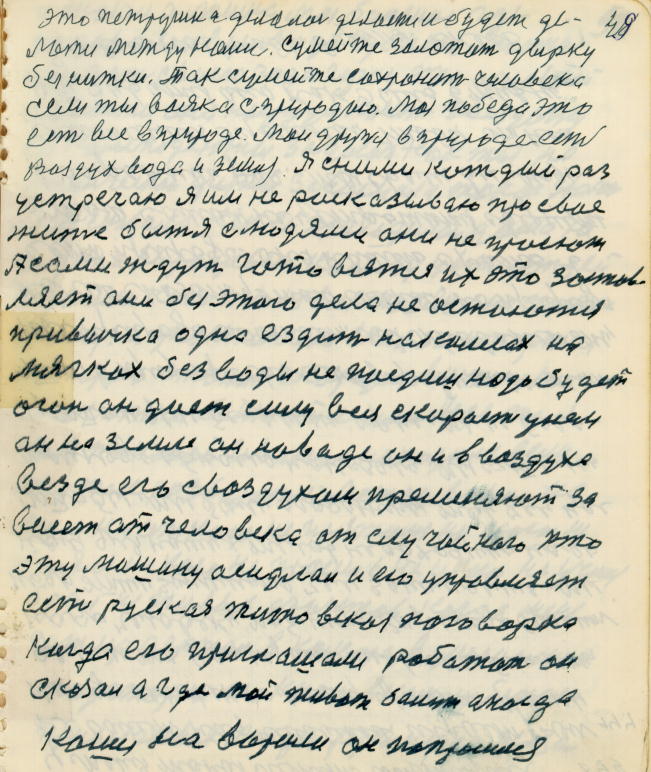 48
это петрушка делалас делается и будет де-
латся между нами. сумейте залатат дырку
без нитки. Так сумейте сохранит человека
если ты вояка с природою. Моя победа это
ест все в природе. Мои друзя в природе ест
воздух вода и земля. Я с ними каждый раз
устречаю я им не расказываю про свое
житье бытя с людями они не просют
А сами ждут готовятся их это застав-
ляет они без этого дела не останутся
привычка одна ездит на колесах на
мягких без воды не поедиш надо будет
огон он дает силу вец скорост у нем
он на земле он на воде он и в воздухе
везде его с воздухом применяют за
висет от человека от случайного кто
эту машину оседлал и его управляет
ест руская житовская поговорка
когда его приглашали работат он
сказал а где мой живот болит а когда
кашы на варили он попросися